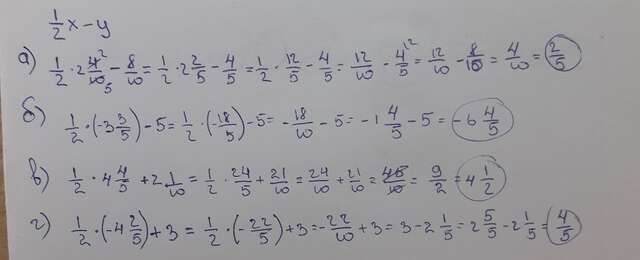 1/2 x - y
а) 1/2 · 2 4/10 - 8/10 = 1/2 · 2 2/5 - 4/5 = 1/2 · 12/5 - 4/5 = 12/10 - 4/5 = 12/10 - 8/10 = 4/10 = 2/5
б) 1/2 · (-3 3/5) - 5 = 1/2 · (-18/5) - 5 = -18/10 - 5 = -1 4/5 - 5 = -6 4/5
в) 1/2 · 4 4/5 + 2 1/10 = 1/2 · 24/5 + 21/10 = 24/10 + 21/10 = 45/10 = 9/2 = 4 1/2
г) 1/2 · (-4 2/5) + 3 = 1/2 · (-22/5) + 3 = -22/10 + 3 = 3 - 2 1/5 = 2 5/5 - 2 1/5 = 4/5